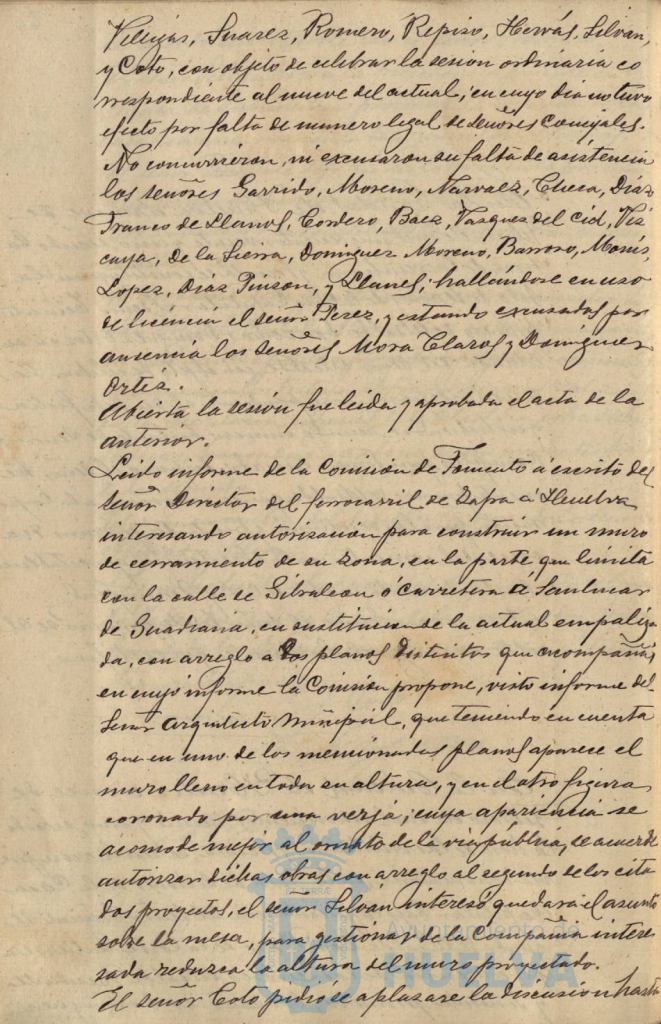 Villegas, Suarez, Romero, Repiso, Hervás, Silvan,
y Coto, con objeto de celebrar la sesion ordinaria co
rrespondiente al nueve del actual, en cuyo dia no tuvo
efecto por falta de numero legal de señores Concejales.
No concurrieron, ni excusaron su falta de asistencia
los señores Garrido, Moreno, Narvaez, Checa, Diaz
Franco de Llanos, Cordero, Baez, Vazquez del Cid, Viz
caya, de la Sierra, Dominguez Moreno, Barroso, Monís,
Lopez, Diaz Pinzon, y Llanes; hallándose en uso
de licencia el señor Perez, y estando excusados por
ausencia los señores Mora Claros y Dominguez
Ortiz.
Abierta la sesión fue leida y aprobada el acta de la
anterior.
Leido informe de la Comisión de Fomento á escrito del
señor Director del ferrocarril de Zafra á Huelva
interesando autorización para construir un muro
de cerramiento de su zona, en la parte que limita
con la calle de Gibraleon ó carretera á Sanlucar
de Guadiana, en sustitucion de la actual empaliza
da, con arreglo a dos planos distintos que acompaña;
en cuyo informe la Comisión propone, visto informe del
señor Arquitecto municipal, que teniendo en cuenta
que en uno de los mencionados planos aparece el
muro lleno en toda su altura, y en el otro figura
coronado por una verja, cuya apariencia se
acomode mejor al ornato de la via pública, se acuerde
autorizar dichas obras con arreglo al segundo de los cita
dos proyectos, el señor Silván interesó quedara el asunto
sobre la mesa, para gestionar de la Compañia intere
sada reduzca la altura del muro proyectado.
El señor Coto pidió se aplazare la discusion hasta
AYUNTAMIENTO DE
HUELVA